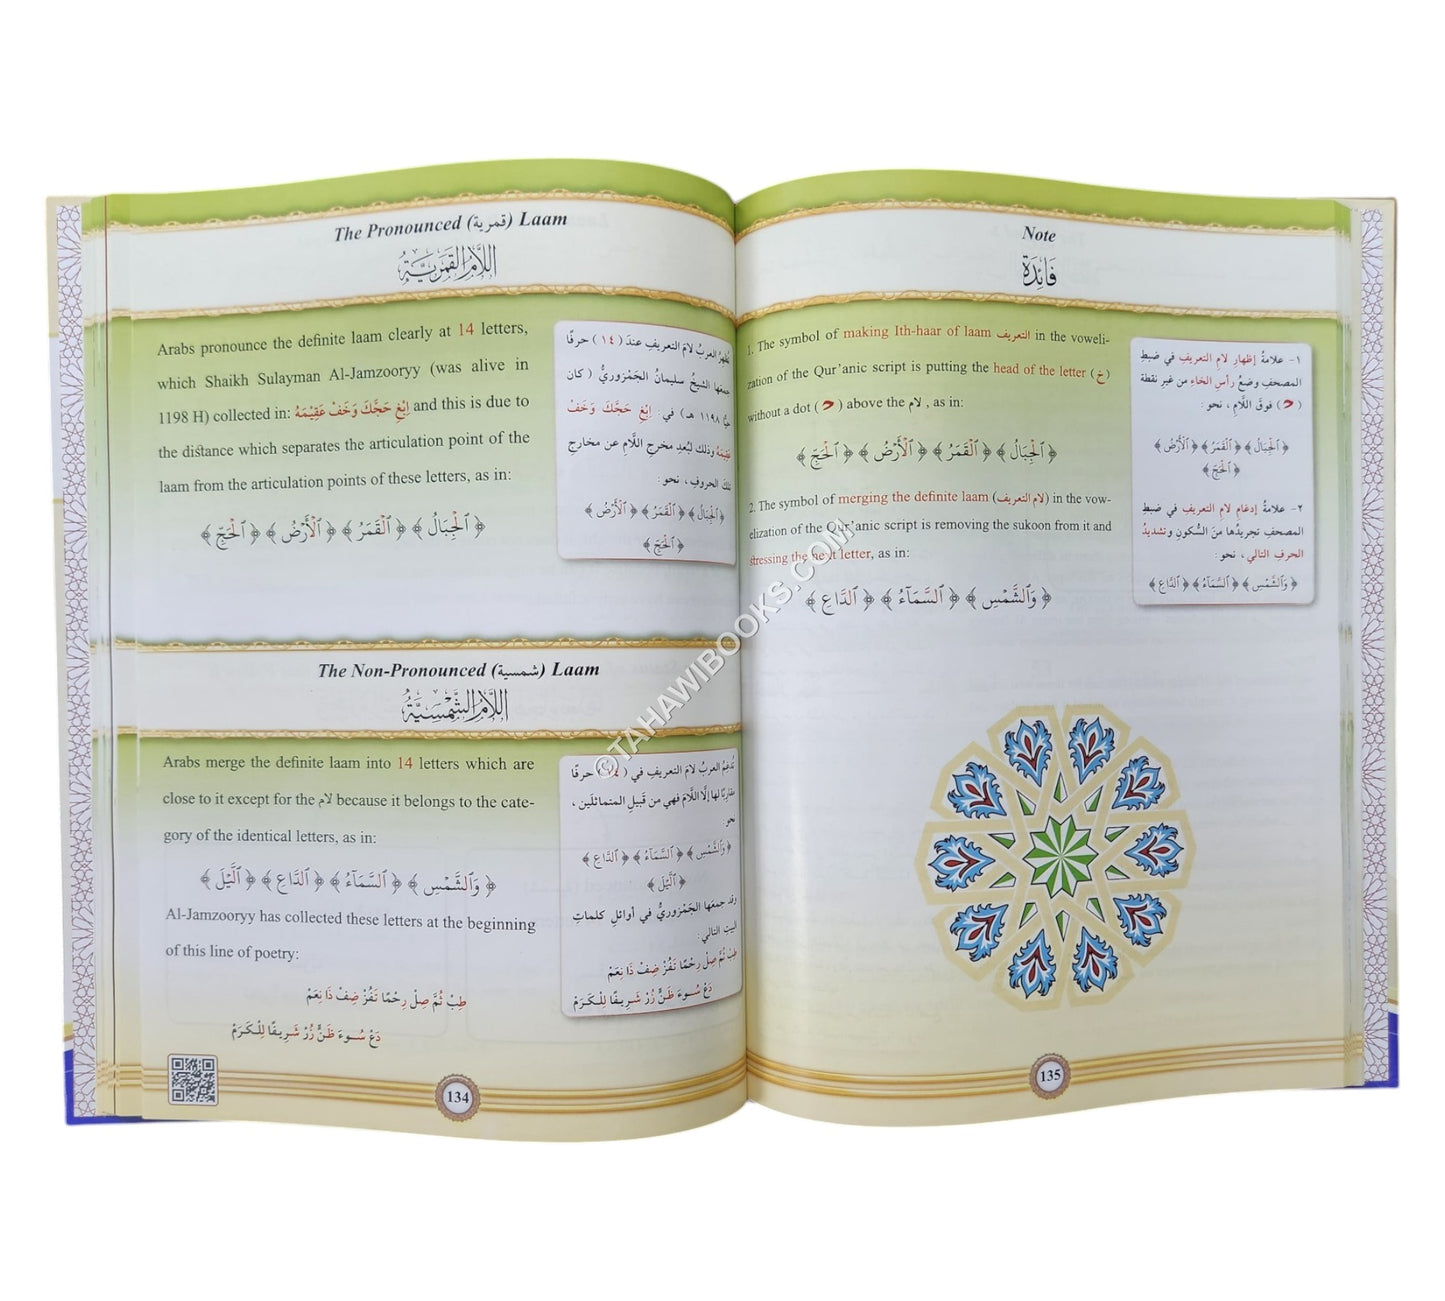 The Pronounced (قمرية) Laam
اللَّامُ القَمَرِيَّةُ
Arabs pronounce the definite laam clearly at 14 letters,
which Shaikh Sulayman Al-Jamzooryy (was alive in
1198 H) collected in: اِبْغِ حَجَّكَ وَخَفْ عَقِيْمَهُ and this is due to
the distance which separates the articulation point of the
laam from the articulation points of these letters, as in:
﴿ ٱلْجِبَالُ ﴾ ﴿ ٱلْقَمَرُ ﴾ ﴿ ٱلْأَرْضُ ﴾ ﴿ ٱلْحَجِّ ﴾
تُظهِرُ العربُ لامَ التعريفِ عندَ ( ١٤ ) حرفًا
جمعَها الشيخُ سليمانُ الجَمْزوريُّ ( كان
حيًّا ١١٩٨ هـ ) في : اِبْغِ حَجَّكَ وَخَفْ
عَقِيْمَهُ وذلك لبُعدِ مخرجِ اللَّامِ عن مخارجِ
تلكَ الحروفِ ، نحو :
﴿ ٱلْجِبَالُ ﴾ ﴿ ٱلْقَمَرُ ﴾ ﴿ ٱلْأَرْضُ ﴾
﴿ ٱلْحَجِّ ﴾
The Non-Pronounced (شمسية) Laam
اللَّامُ الشَّمْسِيَّةُ
Arabs merge the definite laam into 14 letters which are
close to it except for the لام because it belongs to the cate-
gory of the identical letters, as in:
﴿ وَٱلشَّمْسِ ﴾ ﴿ ٱلسَّمَآءُ ﴾ ﴿ ٱلدَّاعِ ﴾ ﴿ ٱلَّيْلَ ﴾
Al-Jamzooryy has collected these letters at the beginning
of this line of poetry:
طِبْ ثُمَّ صِلْ رَحْمًا تَفُزْ ضِفْ ذَا نِعَمْ
دَعْ سُـوءَ ظَنٍّ زُرْ شَرِيفًا لِلْـكَرَمْ
تُدغِمُ العربُ لامَ التعريفِ في ( ١٤ ) حرفًا
مقاربًا لها إلَّا اللَّامَ فهي من قَبيلِ المتماثلَين ،
نحو :
﴿ وَٱلشَّمْسِ ﴾ ﴿ ٱلسَّمَآءُ ﴾ ﴿ ٱلدَّاعِ ﴾
﴿ ٱلَّيْلَ ﴾
وقد جمعَها الجَمْزوريُّ في أوائلِ كلماتِ
البيتِ التالي :
طِبْ ثُمَّ صِلْ رَحْمًا تَفُزْ ضِفْ ذَا نِعَمْ
دَعْ سُـوءَ ظَنٍّ زُرْ شَـرِيفًا لِلْـكَرَمْ
134
Note
فَائِدَة
1. The symbol of making Ith-haar of laam التعريف in the voweli-
zation of the Qur'anic script is putting the head of the letter (خ)
without a dot ( ) above the لام , as in:
﴿ ٱلْجِبَالُ ﴾ ﴿ ٱلْقَمَرُ ﴾ ﴿ ٱلْأَرْضُ ﴾ ﴿ ٱلْحَجِّ ﴾
2. The symbol of merging the definite laam (لام التعريف) in the vow-
elization of the Qur'anic script is removing the sukoon from it and
stressing the next letter, as in:
﴿ وَٱلشَّمْسِ ﴾ ﴿ ٱلسَّمَآءُ ﴾ ﴿ ٱلدَّاعِ ﴾
١- علامةُ إظهارِ لامِ التعريفِ في ضبطِ
المصحفِ وضعُ رأسِ الخاءِ من غيرِ نقطة
( ) فوقَ اللَّامِ ، نحو :
﴿ ٱلْجِبَالُ ﴾ ﴿ ٱلْقَمَرُ ﴾ ﴿ ٱلْأَرْضُ ﴾
﴿ ٱلْحَجِّ ﴾
٢- علامةُ إدغامِ لامِ التعريفِ في ضبطِ
المصحفِ تجريدُها منَ السُّكونِ و تشديدُ
الحرفِ التالي ، نحو :
﴿ وَٱلشَّمْسِ ﴾ ﴿ ٱلسَّمَآءُ ﴾ ﴿ ٱلدَّاعِ ﴾
135
©TAHAWIBOOKS.COM